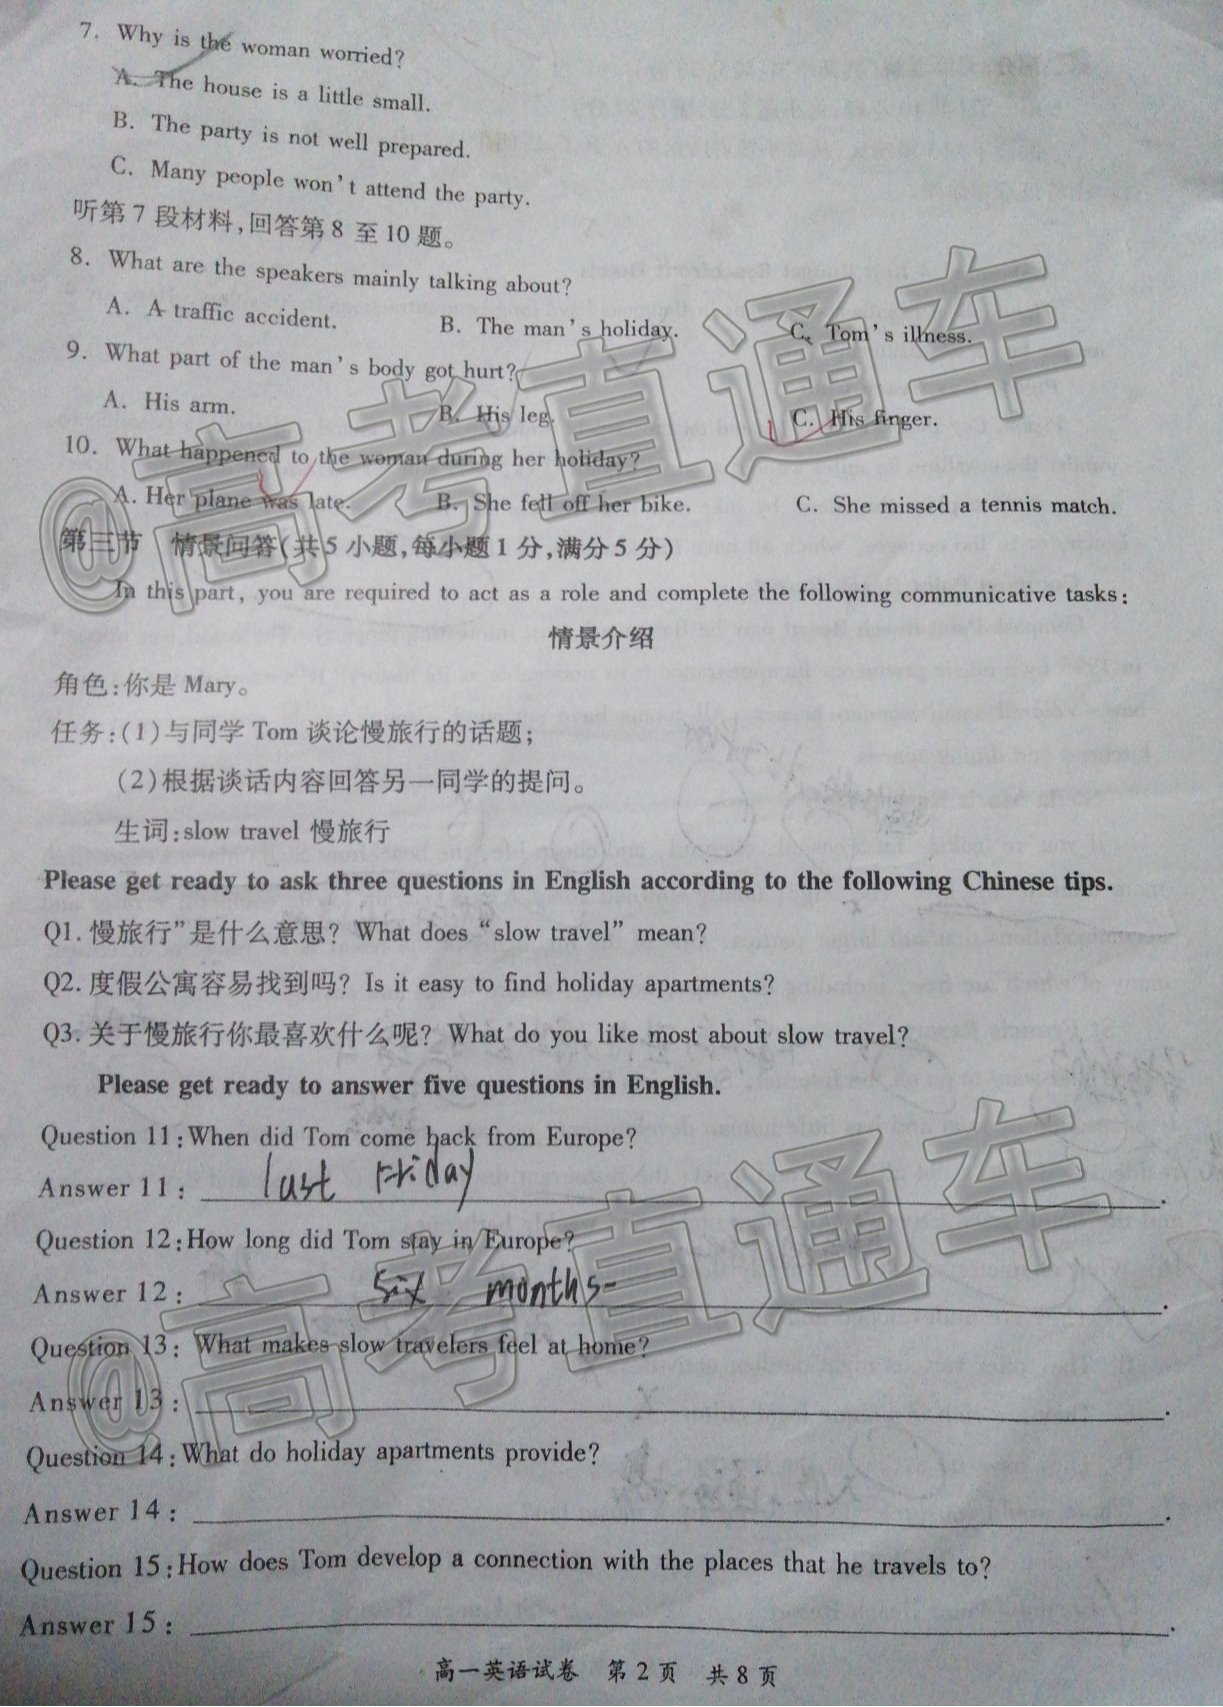 7. Why is the woman worried?
A. The house is a little small.
B. The party is not well prepared.
C. Many people won't attend the party.
听第7段材料,回答第8至10题。
8. What are the speakers mainly talking about?
A. A traffic accident. B. The man's holiday. C. Tom's illness.
9. What part of the man's body got hurt?
A. His arm. B. His leg. C. His finger.
10. What happened to the woman during her holiday?
A. Her plane was late. B. She fell off her bike. C. She missed a tennis match.
第三节 情景问答(共5小题,每小题1分,满分5分)
In this part, you are required to act as a role and complete the following communicative tasks:
情景介绍
角色:你是Mary。
任务:(1)与同学Tom谈论慢旅行的话题;
(2)根据谈话内容回答另一同学的提问。
生词:slow travel 慢旅行
Please get ready to ask three questions in English according to the following Chinese tips.
Q1. 慢旅行”是什么意思? What does “slow travel” mean?
Q2. 度假公寓容易找到吗? Is it easy to find holiday apartments?
Q3. 关于慢旅行你最喜欢什么呢? What do you like most about slow travel?
Please get ready to answer five questions in English.
Question 11:When did Tom come back from Europe?
Answer 11: last Friday.
Question 12:How long did Tom stay in Europe?
Answer 12: six months.
Question 13: What makes slow travelers feel at home?
Answer 13: .
Question 14:What do holiday apartments provide?
Answer 14: .
Question 15:How does Tom develop a connection with the places that he travels to?
Answer 15: .
高一英语试卷 第2页 共8页
@高考直通车
@高考直通车